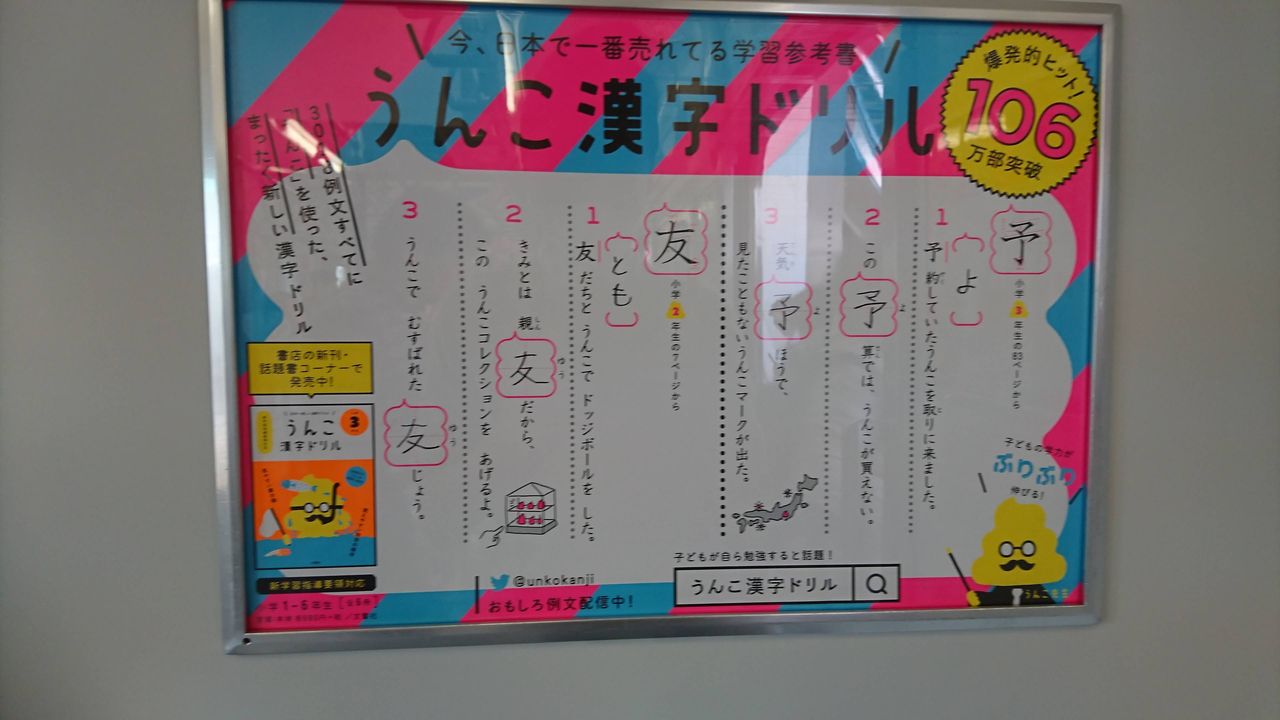 今、日本で一番売れてる学習参考書
うんこ漢字ドリル
爆発的ヒット!
106
万部突破
予
小学3年生の63ページから
1
よ
予約していたうんこを取りに来ました。
2
この予算では、うんこが買えない。
3
天気予ほうで、
見たこともないうんこマークが出た。
友
小学2年生の7ページから
1
とも
友だちと うんこで ドッジボールを した。
2
きみとは 親友だから、
この うんこコレクションを あげるよ。
3
うんこで むすばれた 友じょう。
例文すべてに
を使った、
まったく新しい漢字ドリル
書店の新刊・
話題書コーナーで
発売中!
うんこ
漢字ドリル
3
新学習指導要領対応
小学1-6年生[全6冊]
@unkokanji
おもしろ例文配信中!
子どもが自ら勉強すると話題!
うんこ漢字ドリル
子どもの学力が
ぶりぶり
伸びる!
うんこ先生